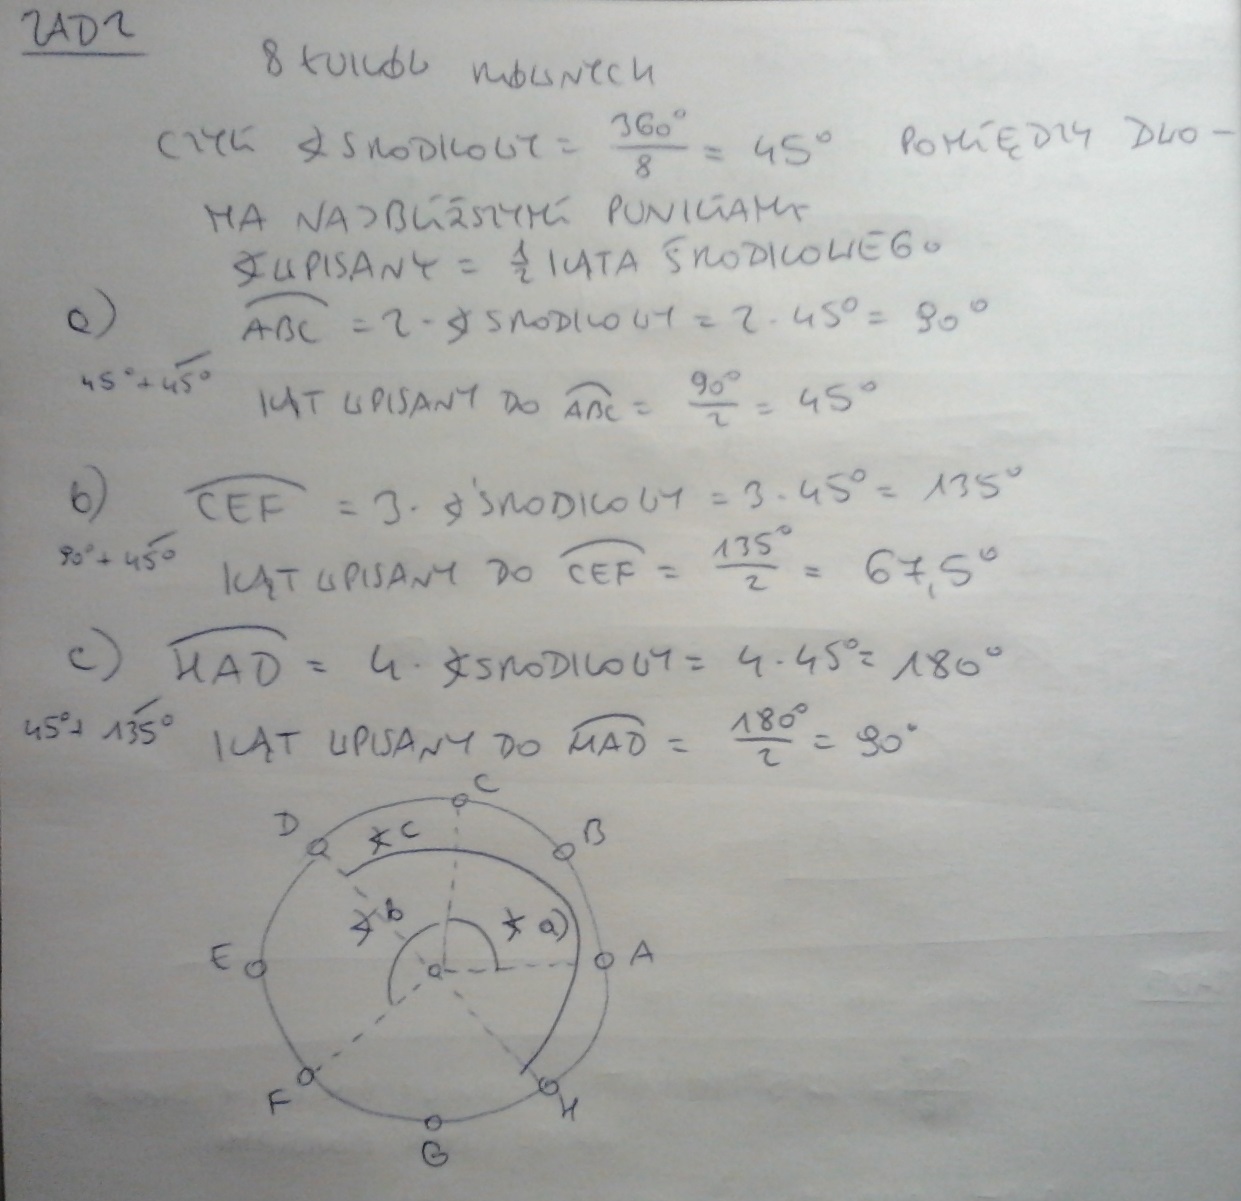 ZAD2
8 ŁUKÓW RÓWNYCH
CZYLI ∡ ŚRODKOWY = 360°/8 = 45° POMIĘDZY DWO-
MA NAJBLIŻSZYMI PUNKTAMI
∡ WPISANY = 1/2 KĄTA ŚRODKOWEGO
a) ABC = 2 · ∡ ŚRODKOWY = 2 · 45° = 90°
45° + 45°
KĄT WPISANY DO ABC = 90°/2 = 45°
b) CEF = 3 · ∡ ŚRODKOWY = 3 · 45° = 135°
90° + 45°
KĄT WPISANY DO CEF = 135°/2 = 67,5°
c) HAD = 4 · ∡ ŚRODKOWY = 4 · 45° = 180°
45° + 135°
KĄT WPISANY DO HAD = 180°/2 = 90°
C
D
∡ c
B
∡ b
∡ a)
E
A
F
H
G